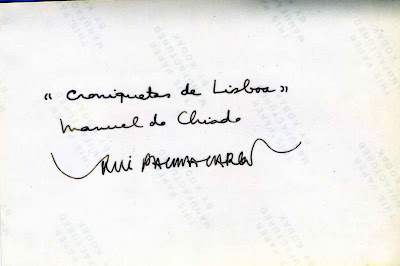 « Croniquetas de Lisboa »
Manuel do Chiado
RUI PALMA CARLOS